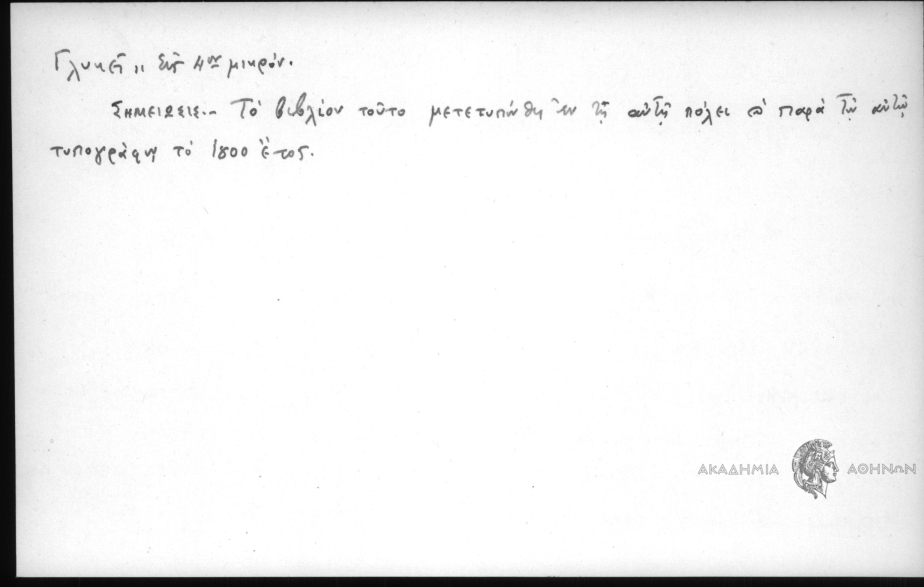 Γλυκεῖ „ εἰς 4ον μικρόν.
ΣΗΜΕΙΩΣΙΣ.- Τὸ βιβλίον τοῦτο μετετυπώθη ἐν τῇ αὐτῇ πόλει παρὰ τῷ αὐτῷ
τυπογράφῳ τὸ 1800 ἔτος.
ΑΚΑΔΗΜΙΑ ΑΘΗΝΩΝ